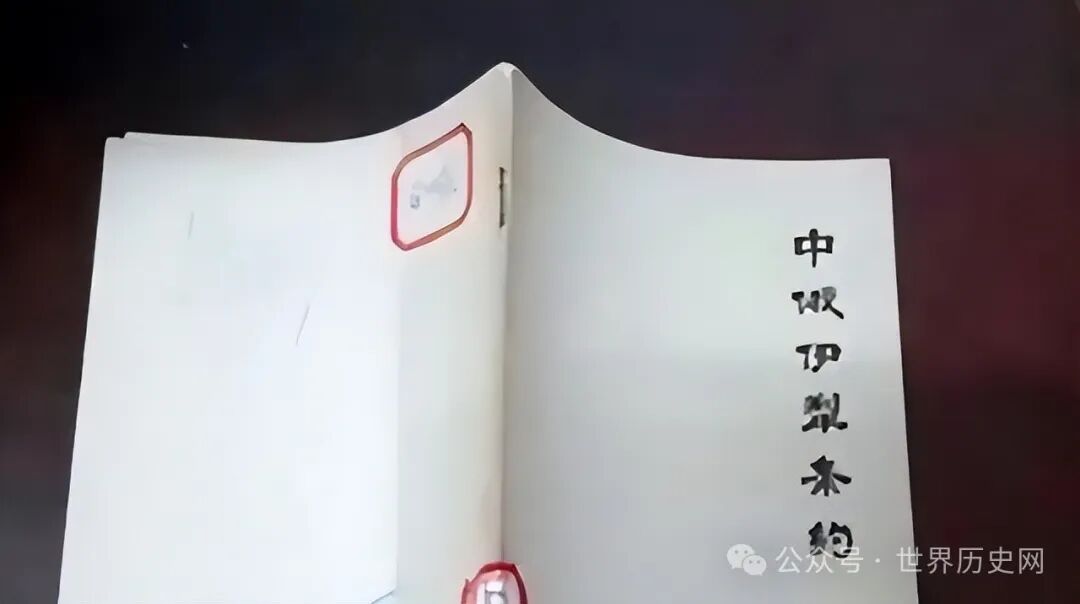 中俄伊犁条约
公众号 · 世界历史网